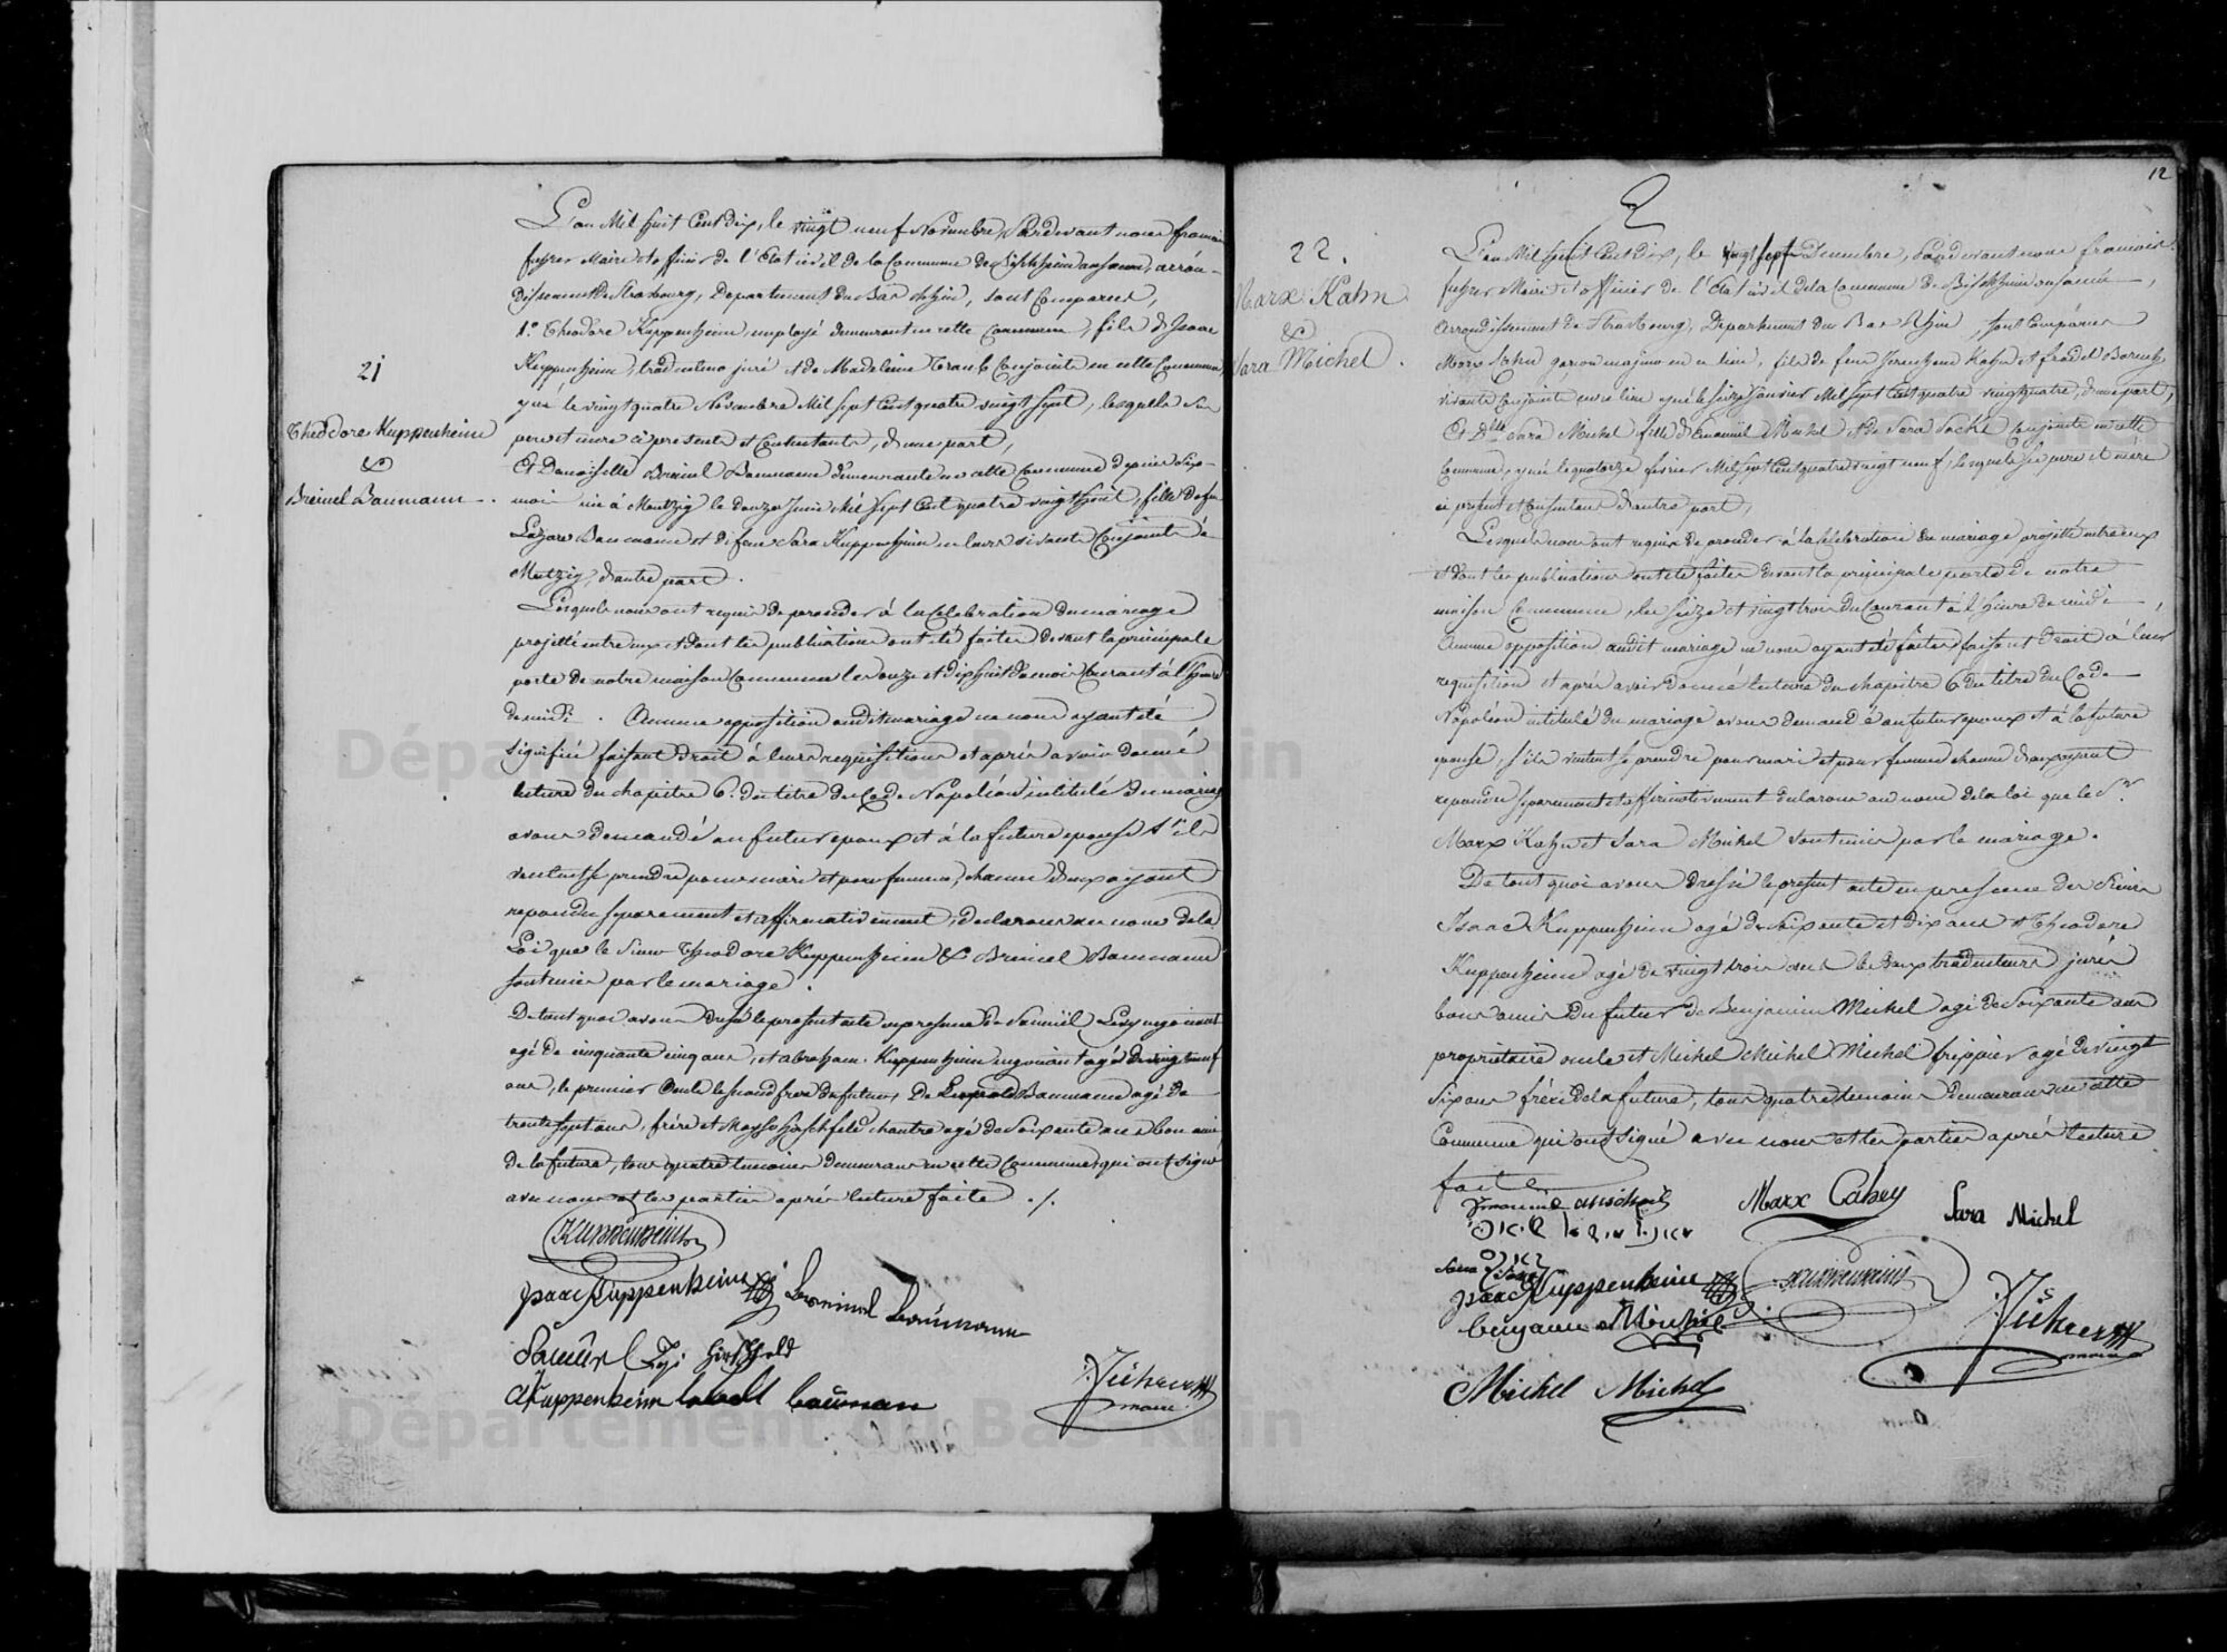 21
Theodore Kuppenheim
&
Breinel Baumann
L'an Mil huit Cent dix, le vingt neuf Novembre, Pardevant nous francois
fuhrer Maire et officier de l'Etat civil de la Commune de Bischheim au saum, arron-
dissement de Strasbourg, Departement du Bas Rhin, sont Comparus,
1.° Theodore Kuppenheim, employé demeurant en cette Commune, fils d'Isaac
Kuppenheim, traducteur juré et de Madeleine Conjoints en cette Commune,
né le vingt quatre Novembre Mil sept Cent quatre vingt sept, lesquels
pere et mere ci presents et Consentants, d'une part,
Et Demoiselle Breinel Baumann demeurante en cette Commune depuis six
mois née à Mutzig le douze Juin Mil sept Cent quatre vingt huit, fille de feu
Lazare Baumann et de feue Sara Kuppenheim en leur vivant Conjoints à
Mutzig, d'autre part.
Lesquels nous ont requis de proceder à la Celebration du mariage
projetté entre eux et dont les publications ont été faites devant la principale
porte de notre maison Commune les onze et dix huit du mois Courant à l'heure
de midi. Aucune opposition audit mariage ne nous ayant été
signifiée faisant droit à leur requisition et après avoir donné
lecture du chapitre 6. du titre du Code Napoléon intitulé du mariage
avons demandé au futur epoux et à la future epouse s'ils
veulent se prendre pour mari et pour femme, chacun d'eux ayant
repondu separement et affirmativement, declarons au nom de la
Loi que le Sieur Theodore Kuppenheim & Breinel Baumann
sont unis par le mariage.
De tout quoi avons dressé le present acte en presence de Samuël Levy negociant
agé de cinquante cinq ans, et Abraham Kuppenheim negociant agé de vingt neuf
ans, le premier oncle le second frere du futur, De Leopold Baumann agé de
trente sept ans, frére et Hirschfeld chantre agé de soixante ans bon ami
de la future, tous quatre temoins demeurans en cette Commune qui ont signé
avec nous et les parties aprés lecture faite ./.
Kuppenheim
Isaac Kuppenheim Breinel Baumann
Samuel Hirschfeld
A Kuppenheim bauman
Führer
maire
12
22.
Marx Kahn
&
Sara Michel.
L'an Mil huit Cent dix, le vingt sept Decembre, Pardevant nous francois
fuhrer Maire et officier de l'Etat civil de la Commune de Bischheim au saum,
Arrondissement de Strasbourg, Departement du Bas Rhin, sont Comparus
Marx Kahn garcon majeur en ce lieu, fils de feu Kahn et
vivants Conjoints en ce lieu né le seize Janvier Mil sept Cent quatre vingt quatre, d'une part,
Et Dlle Sara Michel fille d'Emanuel Michel et de Sara Conjoints en cette
Commune, née le quatorze fevrier Mil sept Cent quatre vingt neuf, lesquels ses pere et mére
ci present et Consentans d'autre part,
Lesquels nous ont requis de proceder à la Celebration du mariage projetté entre eux
et dont les publications ont été faites devant la principale porte de notre
maison Commune, les seize et vingt trois du Courant à l'heure de midi,
Aucune opposition audit mariage ne nous ayant été faite, faisant droit à leur
requisition et aprés avoir donné lecture du chapitre 6 du titre du Code
Napoléon intitulé du mariage avons demandé au futur epoux et à la future
epouse, s'ils veulent se prendre pour mari et pour femme chacun d'eux ayant
repondu separement et affirmativement declarons au nom de la loi que le Sr.
Marx Kahn et Sara Michel sont unis par le mariage.
De tout quoi avons dressé le present acte en presence des Sieurs
Isaac Kuppenheim agé de soixante et dix ans et Theodore
Kuppenheim agé de vingt trois ans les deux traducteurs jurés
bons amis du futur de Benjamin Michel agé de soixante ans
propriétaire oncle et Michel Michel frippier agé de vingt
six ans frére de la future, tous quatre temoins demeurans en cette
Commune qui ont signé avec nous et les parties après lecture
faite
Marx Cahen Sara Michel
Isaac Kuppenheim Kuppenheim
Michel Führer
maire
Michel Michel
Département du Bas-Rhin
Département du Bas-Rhin